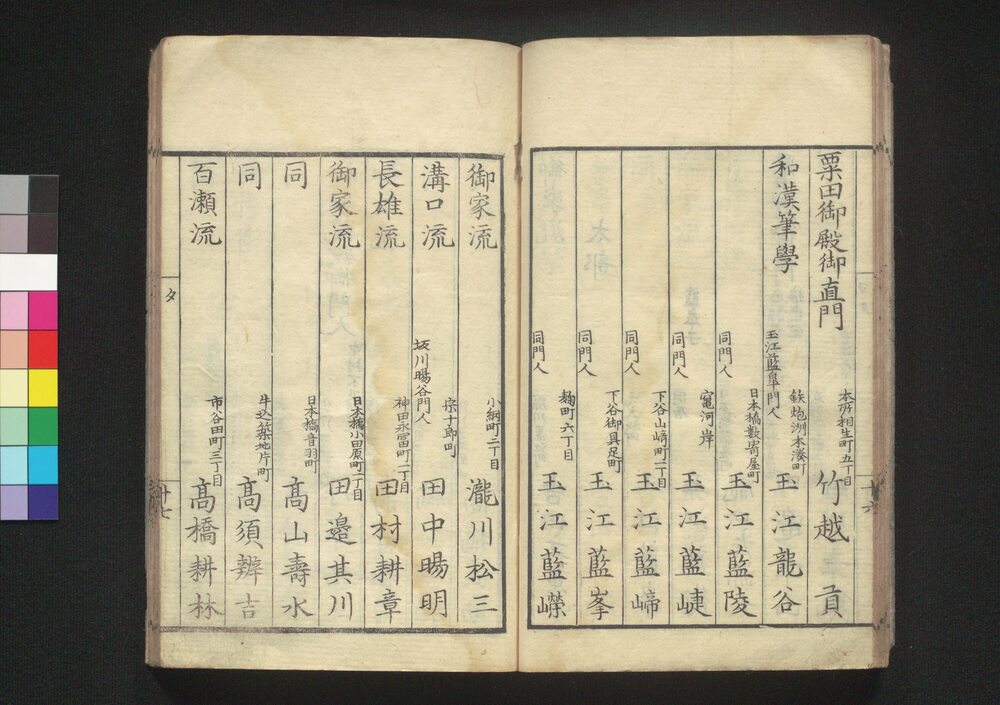 粟田御殿御直門
本所相生町五丁目
竹越貢
和漢筆學
玉江藍皐門人
鉄炮洲本湊町
玉江龍谷
同門人
日本橋數寄屋町
玉江藍陵
同門人
竃河岸
玉江藍崨
同門人
下谷山﨑町二丁目
玉江藍崹
同門人
下谷御具足町
玉江藍峯
同門人
麹町六丁目
玉江藍嶸
御家流
小網町二丁目
瀧川松三
溝口流
坂川暘谷門人
宗十郎町
田中暘明
長雄流
神田永冨町二丁目
田村耕章
御家流
日本橋小田原町二丁目
田邉其川
同
日本橋音羽町
髙山壽水
同
牛込築地片町
髙須辨吉
百瀬流
市谷田町三丁目
髙橋耕林
タ
廿七